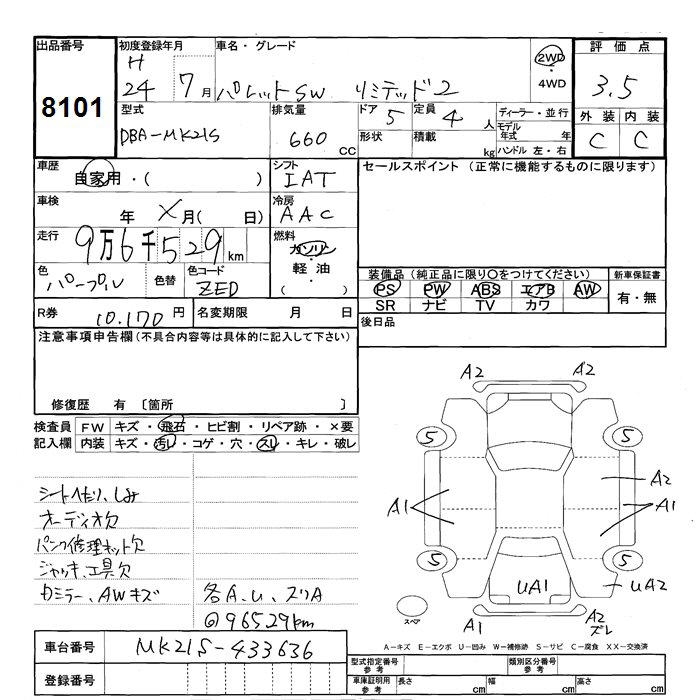 出品番号 初度登録年月 車名・グレード 評価点
8101 H 24 7月 パレットSW リミテッド2 2WD ・ 4WD 3.5
型式 排気量 ドア 定員 ディーラー・並行 外装 内装
DBA-MK21S 660 CC 5 4人 モデル年式 年 C C
形状 積載 kg ハンドル 左・右
車歴 自家用・( ) シフト IAT セールスポイント (正常に機能するものに限ります)
車検 年 X月( 日) 冷房 AAC
走行 9万6千529km 燃料 ガソリン・軽油・( )
色 パープル 色替 色コード ZED
装備品 (純正品に限り○をつけてください) 新車保証書
PS PW ABS エアB AW 有・無
SR ナビ TV カワ
R券 10.170円 名変期限 月 日 後日品
注意事項申告欄(不具合内容等は具体的に記入して下さい)
修復歴 有 〔箇所 〕
検査員 FW キズ・飛石・ヒビ割・リペア跡・×要
記入欄 内装 キズ・汚レ・コゲ・穴・スレ・キレ・破レ
シートヘたり、しみ
オーディオ欠
パンク修理キット欠
ジャッキ、工具欠
カミラー、AWキズ 各A.U、スリA
@96529km
A2 A2
5 5
A1 A2 A1
5 5
UA1 UA2
スペア A1 A2 ズレ
車台番号 MK21S-433636
A-キズ E-エクボ U-凹み W-補修跡 S-サビ C-腐食 XX-交換済
登録番号
型式指定番号 参考 類別区分番号 参考
車庫証明用 参考 長さ cm 幅 cm 高さ cm